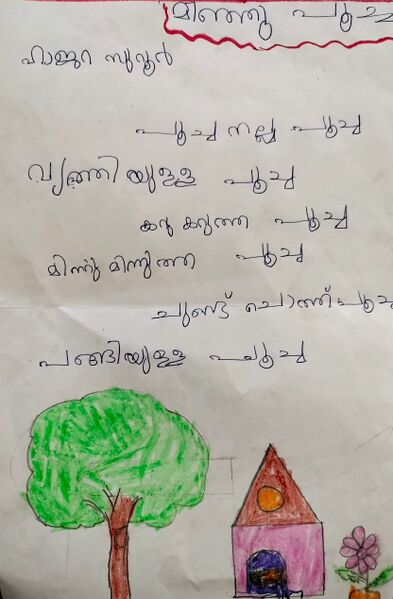 മിഞ്ഞു പൂച്ച
ഹാജറ
പൂച്ച നല്ല പൂച്ച
വൃത്തിയുള്ള പൂച്ച
കറു കറുത്ത പൂച്ച
മിന്നു മിന്നുത്ത പൂച്ച
ചുണ്ട് ചൊത്ത് പൂച്ച
പങ്ങിയുള്ള പൂച്ച